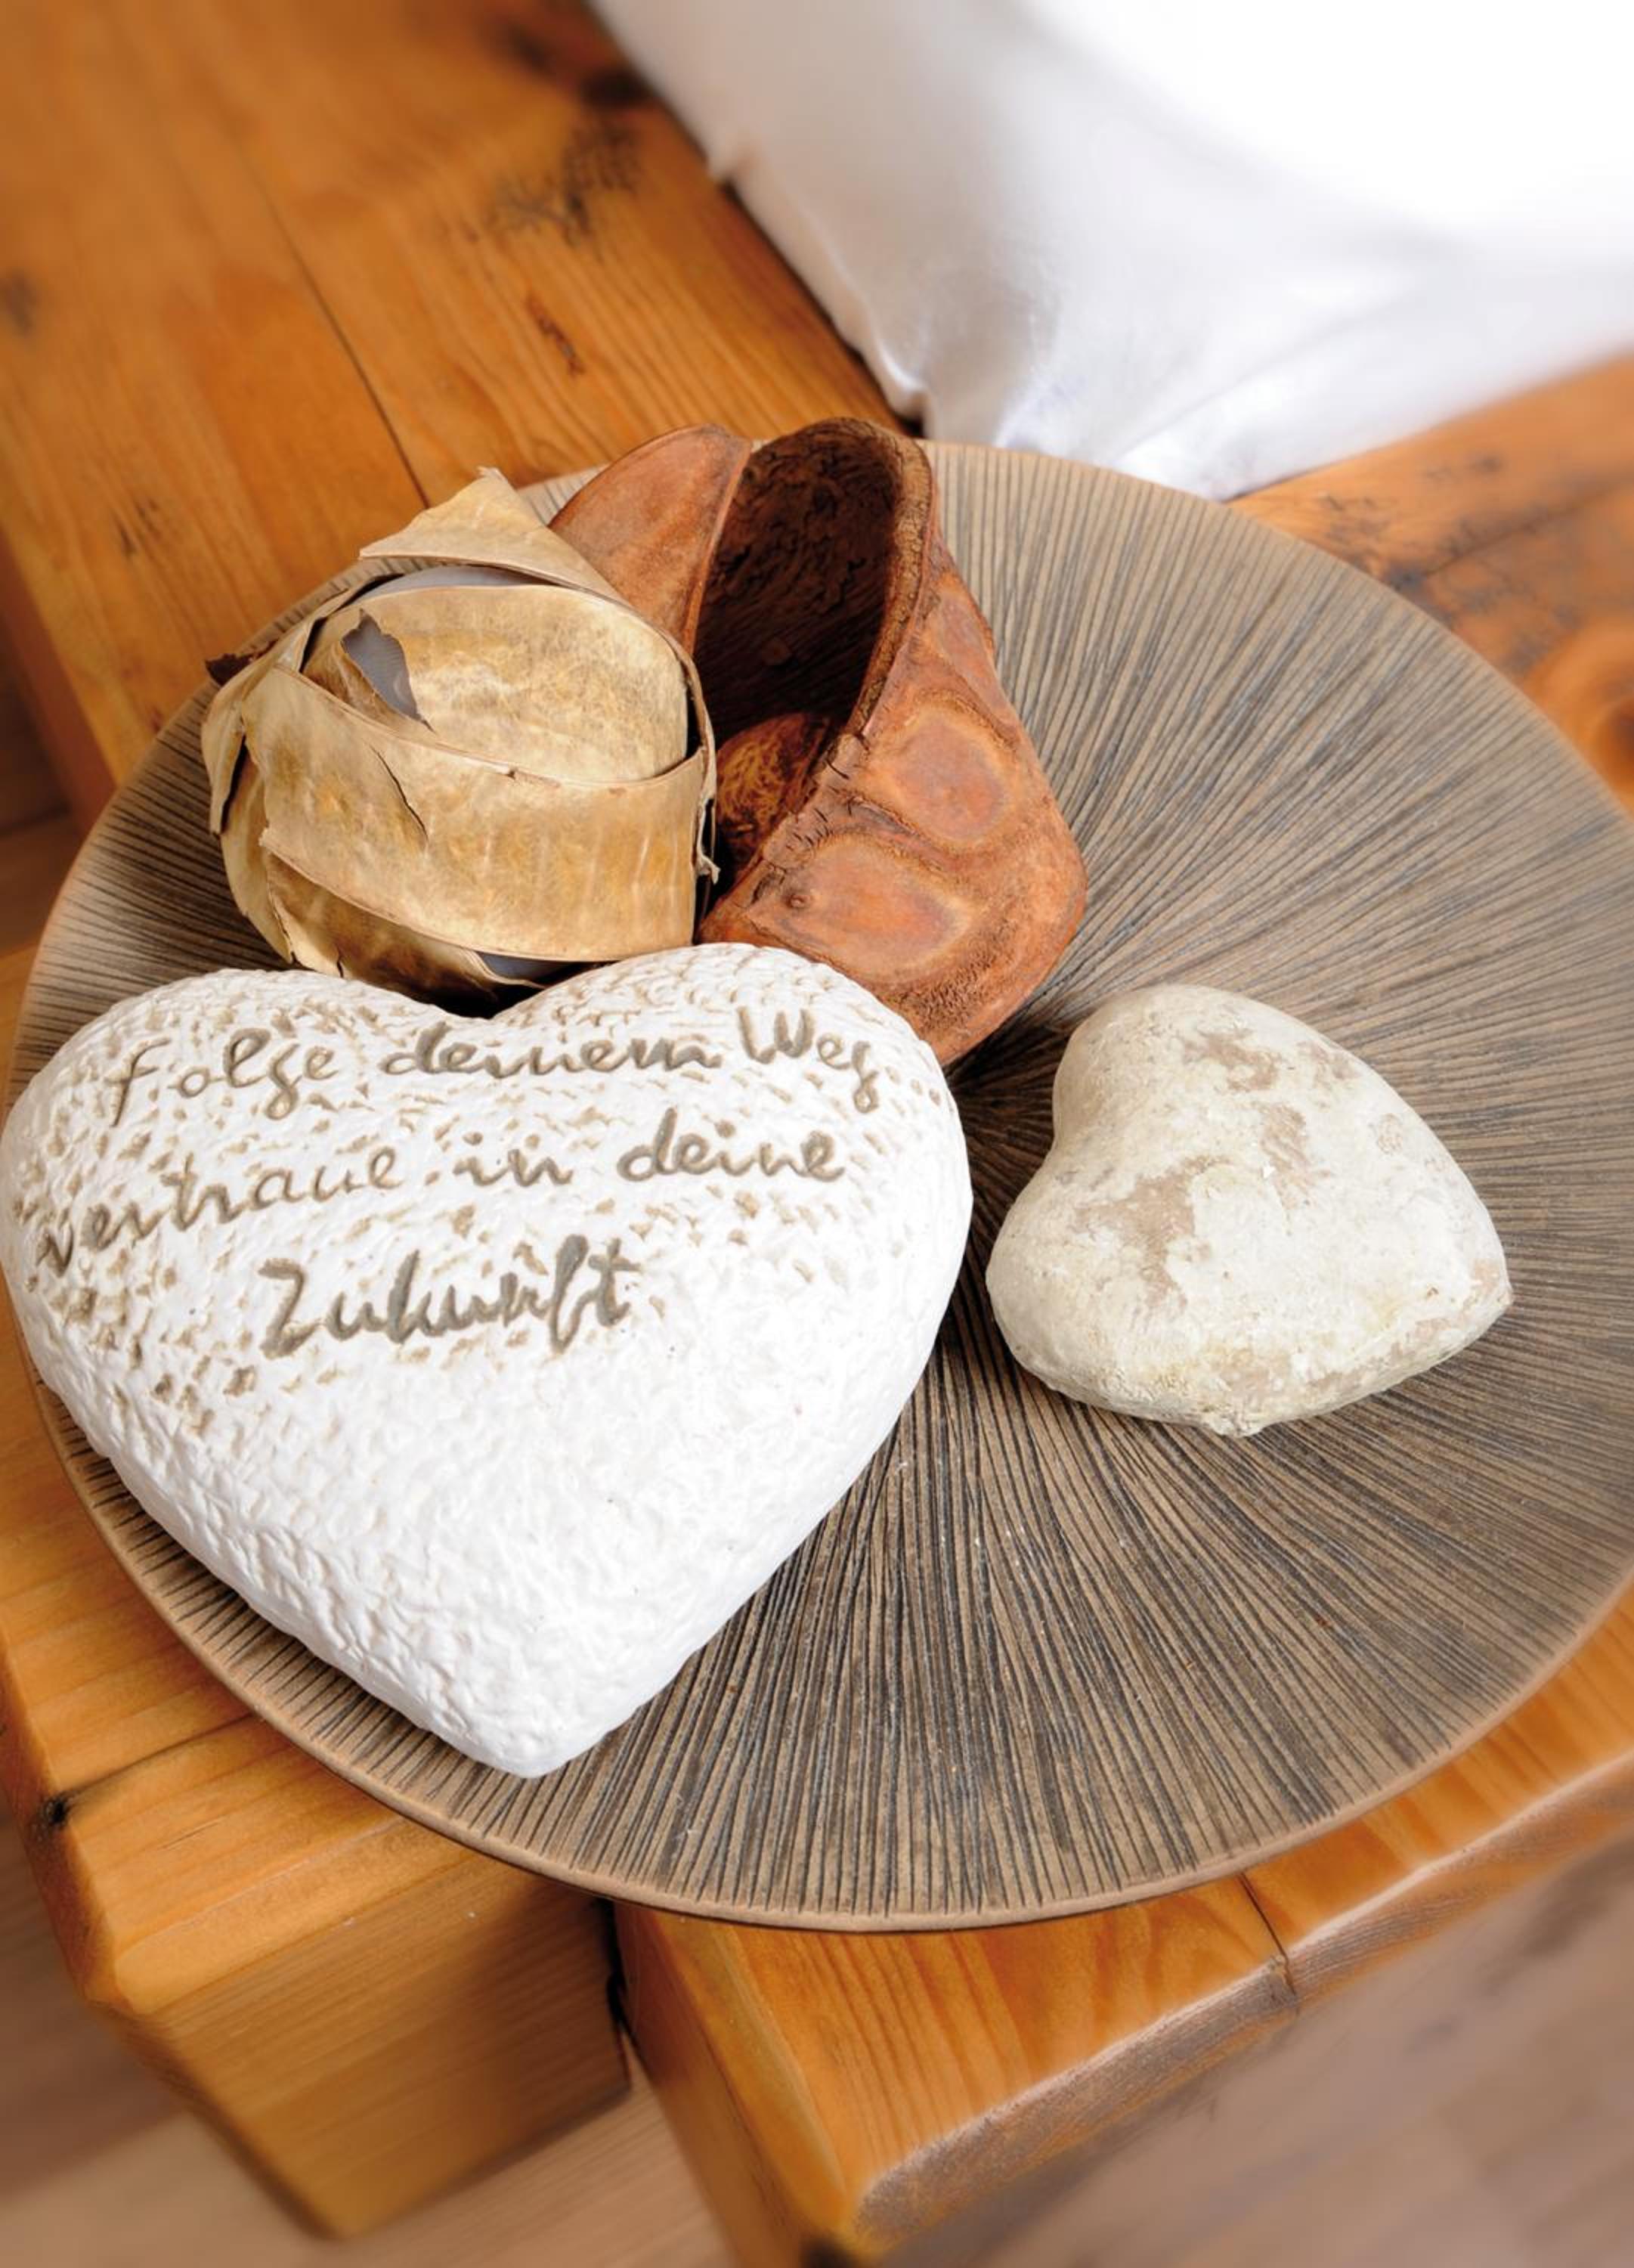 Folge deinem Weg..
vertraue in deine
Zukunft